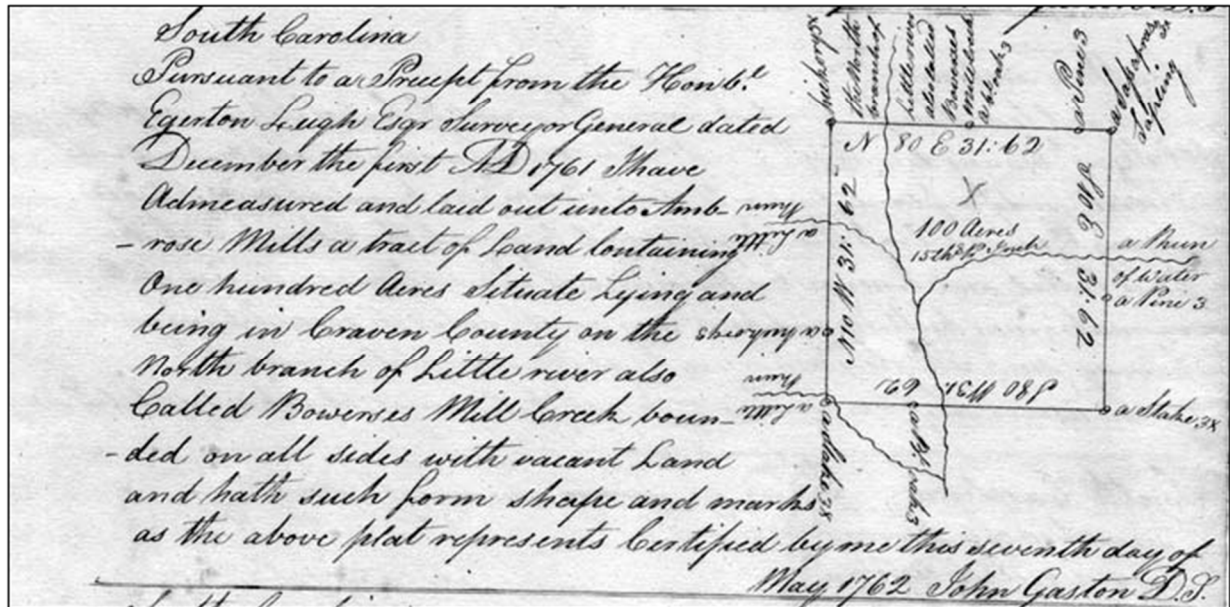 South Carolina
Pursuant to a Precept from the Honble
Egerton Leigh Esqr Surveyor General dated
December the first AD 1761 I have
Admeasured and laid out unto Amb-
-rose Mills a tract of Land Containing
One hundred Acres Situate Lying and
being in Craven County on the
North branch of Little river also
Called Bowerses Mill Creek boun-
-ded on all sides with vacant Land
and hath such form shape and marks
as the above plat represents Certified by me this seventh day of
May 1762 John Gaston D.S.
the North
branch of
little river
also Called
Bowerses
Mill Creek
a Pine 3
a Sassafras
Sapling
N 80 E 31:62
S 10 E 31:62
100 Acres
a Run
of Water
a Pine 3
N 10 W 31:62
a Little
Run
S 80 W 31:62
a Little
Run
a Stake 3X
a Stake 3X
South Carolina